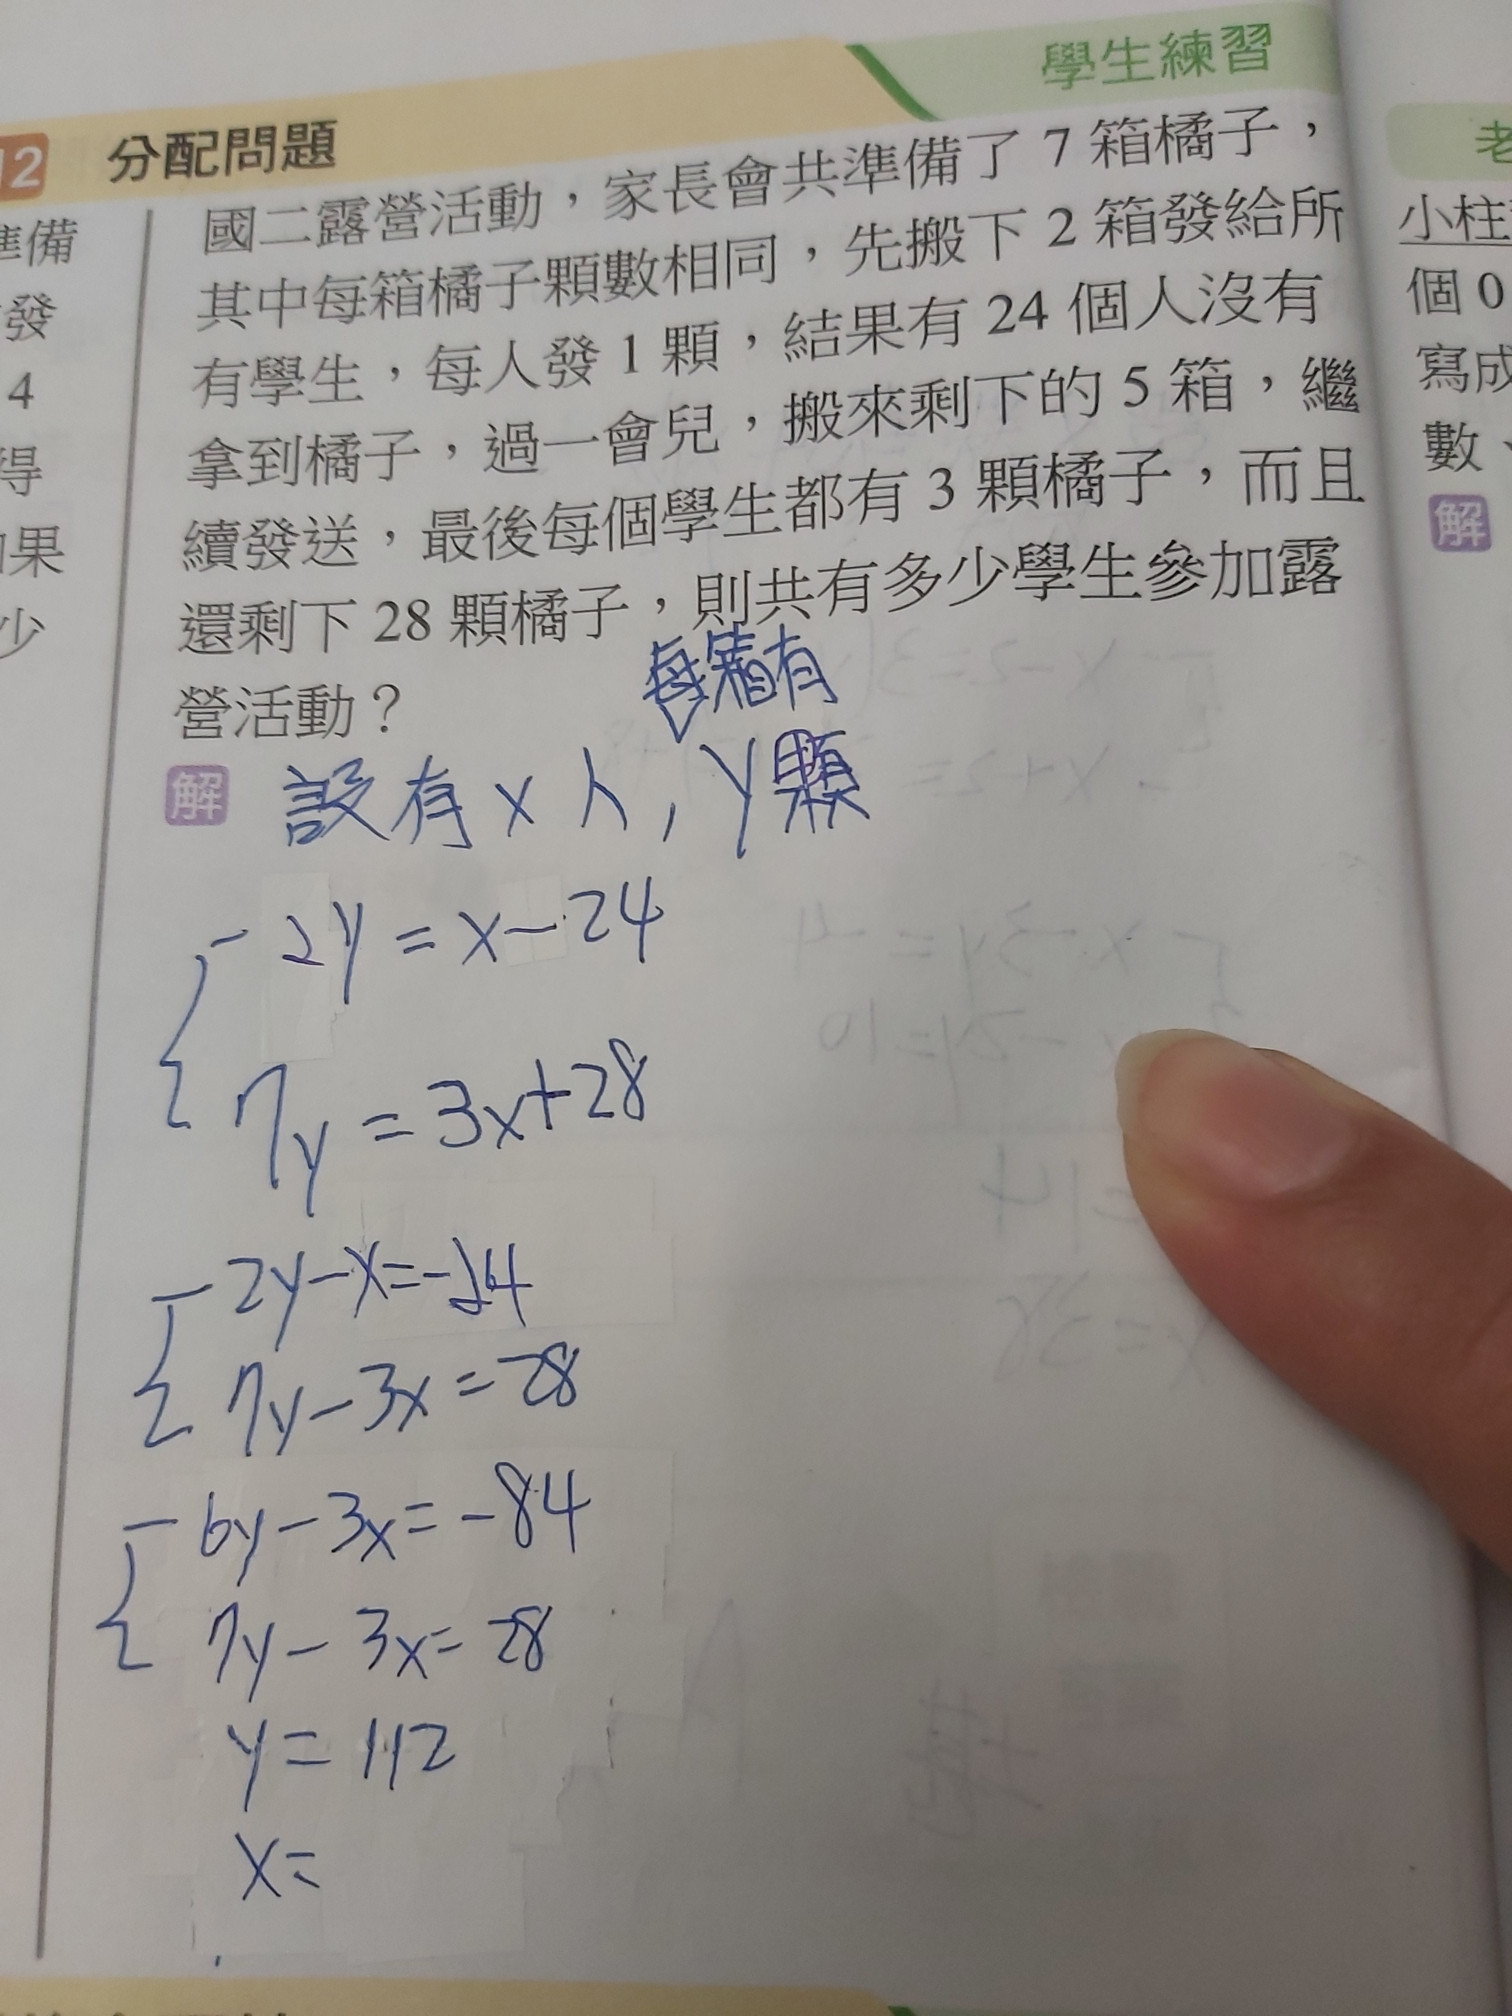 學生練習
12 分配問題
老
國二露營活動，家長會共準備了 7 箱橘子，
其中每箱橘子顆數相同，先搬下 2 箱發給所
有學生，每人發 1 顆，結果有 24 個人沒有
拿到橘子，過一會兒，搬來剩下的 5 箱，繼
續發送，最後每個學生都有 3 顆橘子，而且
還剩下 28 顆橘子，則共有多少學生參加露
營活動？
每箱有
解 設有 x 人, y 顆
2y = x-24
7y = 3x+28
2y-x=-24
7y-3x=28
6y-3x=-84
7y-3x=28
y=112
x=
準備
發
4
得
如果
少
小柱
個 0
寫成
數、
解